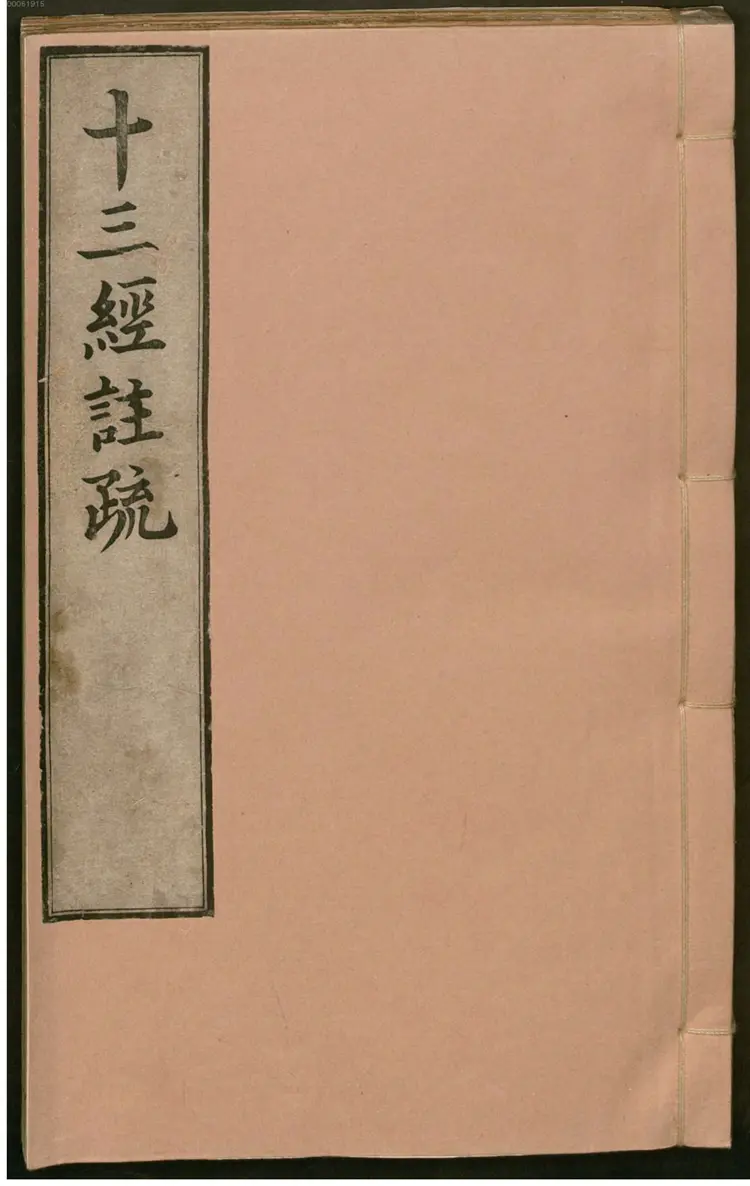 00061915
十三經註疏